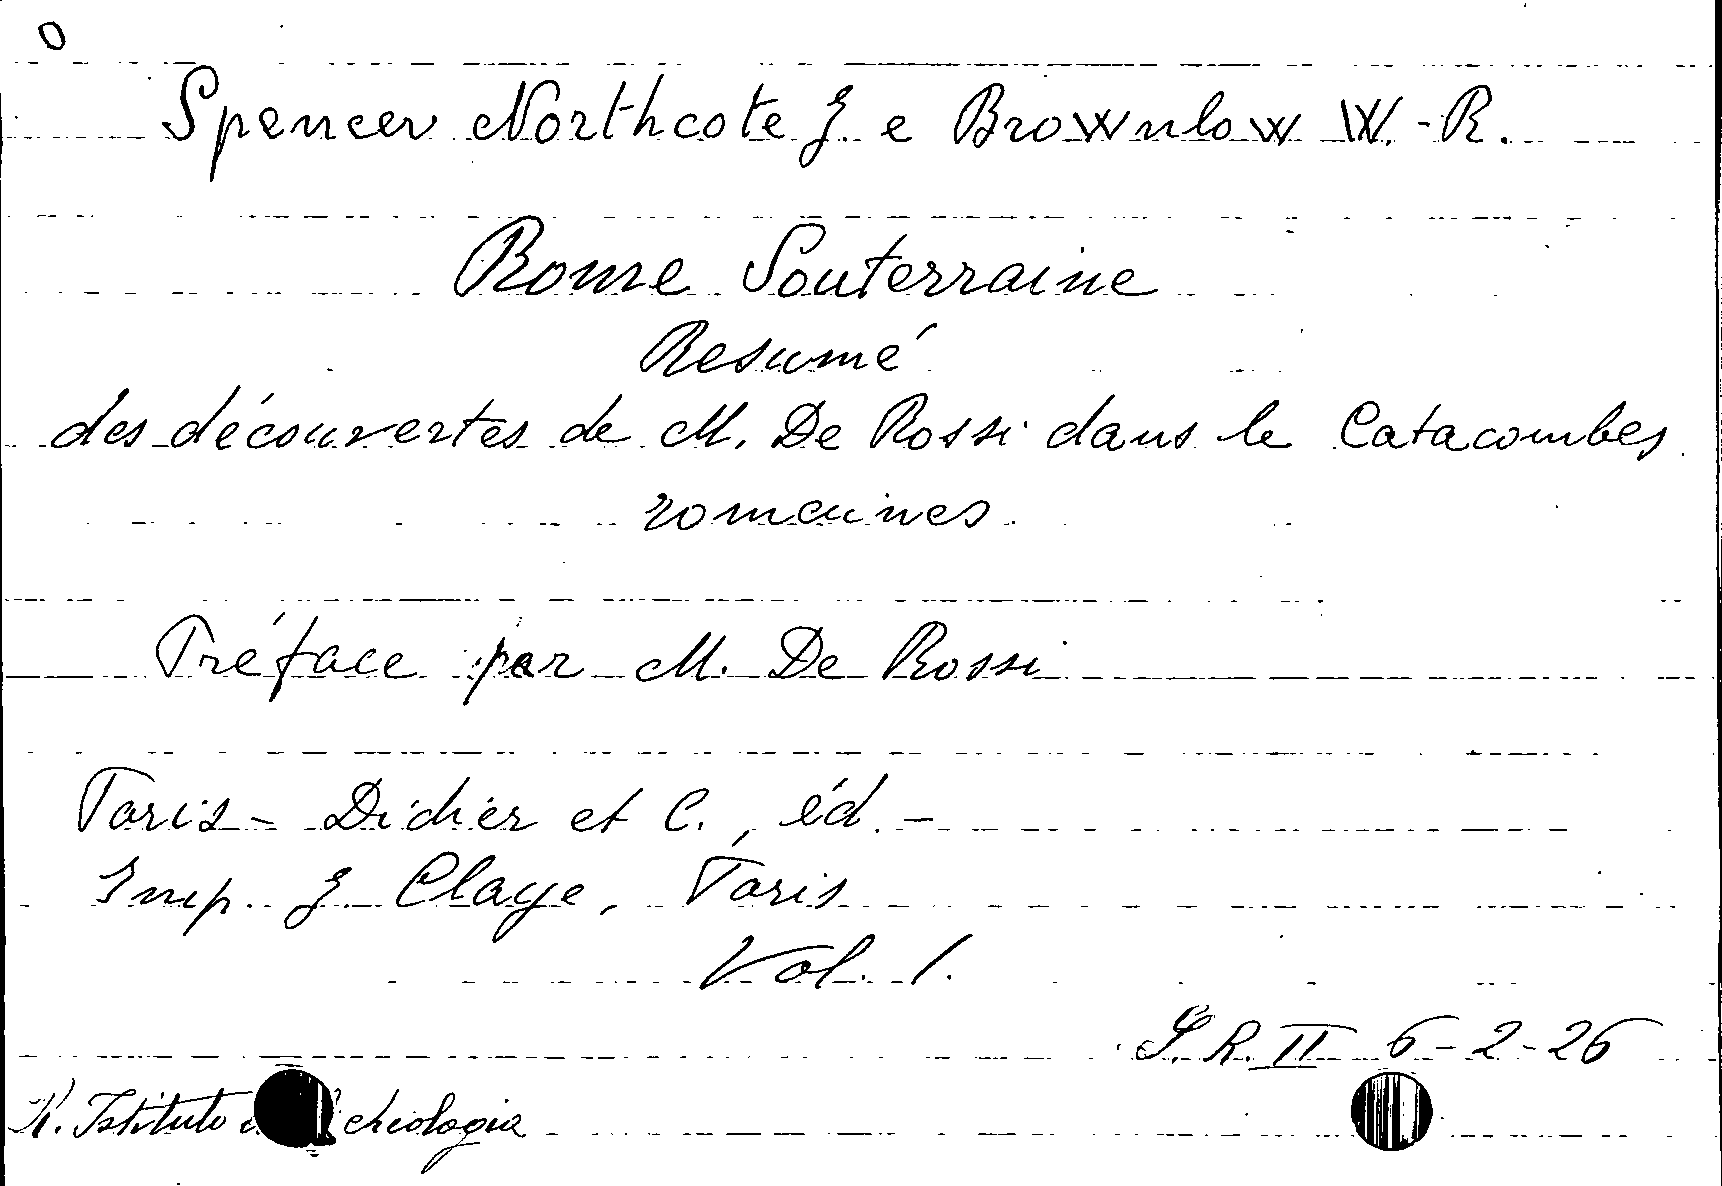 0
Spencer Northcote J. e Brownlow W.-R.
Rome Souterraine
Resumé
des découvertes de M. De Rossi dans le Catacombes
romaines.
Préface par M. De Rossi
Paris - Didier et C., éd. -
Imp. J Claye, Paris
Vol. 1.
S. R. II 6-2-26
R. Istituto cheologia